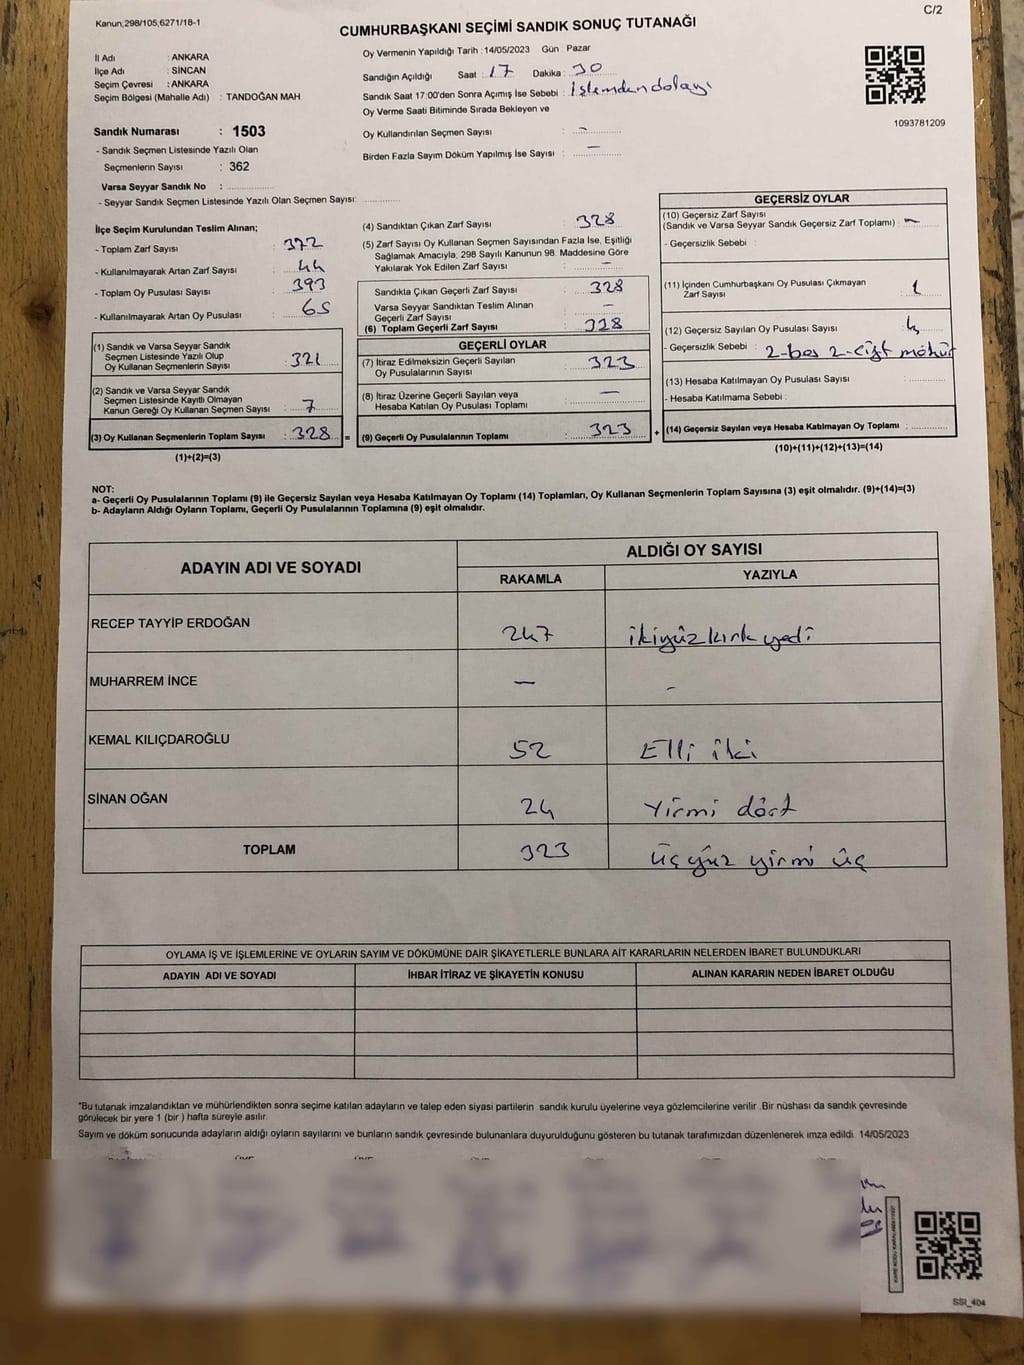 Kanun;298/105,6271/18-1
C/2
CUMHURBAŞKANI SEÇİMİ SANDIK SONUÇ TUTANAĞI
İl Adı : ANKARA
İlçe Adı : SİNCAN
Seçim Çevresi : ANKARA
Seçim Bölgesi (Mahalle Adı) : TANDOĞAN MAH
Sandık Numarası : 1503
- Sandık Seçmen Listesinde Yazılı Olan
Seçmenlerin Sayısı : 362
Varsa Seyyar Sandık No :
- Seyyar Sandık Seçmen Listesinde Yazılı Olan Seçmen Sayısı:
Oy Vermenin Yapıldığı Tarih : 14/05/2023 Gün : Pazar
Sandığın Açıldığı Saat : 17 Dakika : 30
Sandık Saat 17:00'den Sonra Açımış İse Sebebi : İşlemden dolayı
Oy Verme Saati Bitiminde Sırada Bekleyen ve
Oy Kullandırılan Seçmen Sayısı : -
Birden Fazla Sayım Döküm Yapılmış İse Sayısı : -
1093781209
İlçe Seçim Kurulundan Teslim Alınan;
- Toplam Zarf Sayısı : 372
- Kullanılmayarak Artan Zarf Sayısı : 44
- Toplam Oy Pusulası Sayısı : 393
- Kullanılmayarak Artan Oy Pusulası : 65
(1) Sandık ve Varsa Seyyar Sandık
Seçmen Listesinde Yazılı Olup
Oy Kullanan Seçmenlerin Sayısı : 321
(2) Sandık ve Varsa Seyyar Sandık
Seçmen Listesinde Kayıtlı Olmayan
Kanun Gereği Oy Kullanan Seçmen Sayısı : 7
(3) Oy Kullanan Seçmenlerin Toplam Sayısı : 328 =
(1)+(2)=(3)
(4) Sandıktan Çıkan Zarf Sayısı : 328
(5) Zarf Sayısı Oy Kullanan Seçmen Sayısından Fazla İse, Eşitliği
Sağlamak Amacıyla; 298 Sayılı Kanunun 98. Maddesine Göre
Yakılarak Yok Edilen Zarf Sayısı : -
Sandıkta Çıkan Geçerli Zarf Sayısı : 328
Varsa Seyyar Sandıktan Teslim Alınan
Geçerli Zarf Sayısı : -
(6) Toplam Geçerli Zarf Sayısı : 328
GEÇERLİ OYLAR
(7) İtiraz Edilmeksizin Geçerli Sayılan
Oy Pusulalarının Sayısı : 323
(8) İtiraz Üzerine Geçerli Sayılan veya
Hesaba Katılan Oy Pusulası Toplamı : -
(9) Geçerli Oy Pusulalarının Toplamı : 323 +
GEÇERSİZ OYLAR
(10) Geçersiz Zarf Sayısı
(Sandık ve Varsa Seyyar Sandık Geçersiz Zarf Toplamı) : -
- Geçersizlik Sebebi :
(11) İçinden Cumhurbaşkanı Oy Pusulası Çıkmayan
Zarf Sayısı : 1
(12) Geçersiz Sayılan Oy Pusulası Sayısı : 4
- Geçersizlik Sebebi : 2-boş 2-çift mühür
(13) Hesaba Katılmayan Oy Pusulası Sayısı :
- Hesaba Katılmama Sebebi :
(14) Geçersiz Sayılan veya Hesaba Katılmayan Oy Toplamı :
(10)+(11)+(12)+(13)=(14)
NOT:
a- Geçerli Oy Pusulalarının Toplamı (9) ile Geçersiz Sayılan veya Hesaba Katılmayan Oy Toplamı (14) Toplamları, Oy Kullanan Seçmenlerin Toplam Sayısına (3) eşit olmalıdır. (9)+(14)=(3)
b- Adayların Aldığı Oyların Toplamı, Geçerli Oy Pusulalarının Toplamına (9) eşit olmalıdır.
ADAYIN ADI VE SOYADI
ALDIĞI OY SAYISI
RAKAMLA YAZIYLA
RECEP TAYYİP ERDOĞAN 247 ikiyüz kırk yedi
MUHARREM İNCE - -
KEMAL KILIÇDAROĞLU 52 Elli iki
SİNAN OĞAN 24 Yirmi dört
TOPLAM 323 üçyüz yirmi üç
OYLAMA İŞ VE İŞLEMLERİNE VE OYLARIN SAYIM VE DÖKÜMÜNE DAİR ŞİKAYETLERLE BUNLARA AİT KARARLARIN NELERDEN İBARET BULUNDUKLARI
ADAYIN ADI VE SOYADI İHBAR İTİRAZ VE ŞİKAYETİN KONUSU ALINAN KARARIN NEDEN İBARET OLDUĞU
*Bu tutanak imzalandıktan ve mühürlendikten sonra seçime katılan adayların ve talep eden siyasi partilerin sandık kurulu üyelerine veya gözlemcilerine verilir. Bir nüshası da sandık çevresinde
görülecek bir yere 1 (bir ) hafta süreyle asılır.
Sayım ve döküm sonucunda adayların aldığı oyların sayılarını ve bunların sandık çevresinde bulunanlara duyurulduğunu gösteren bu tutanak tarafımızdan düzenlenerek imza edildi. 14/05/2023
SSI_404